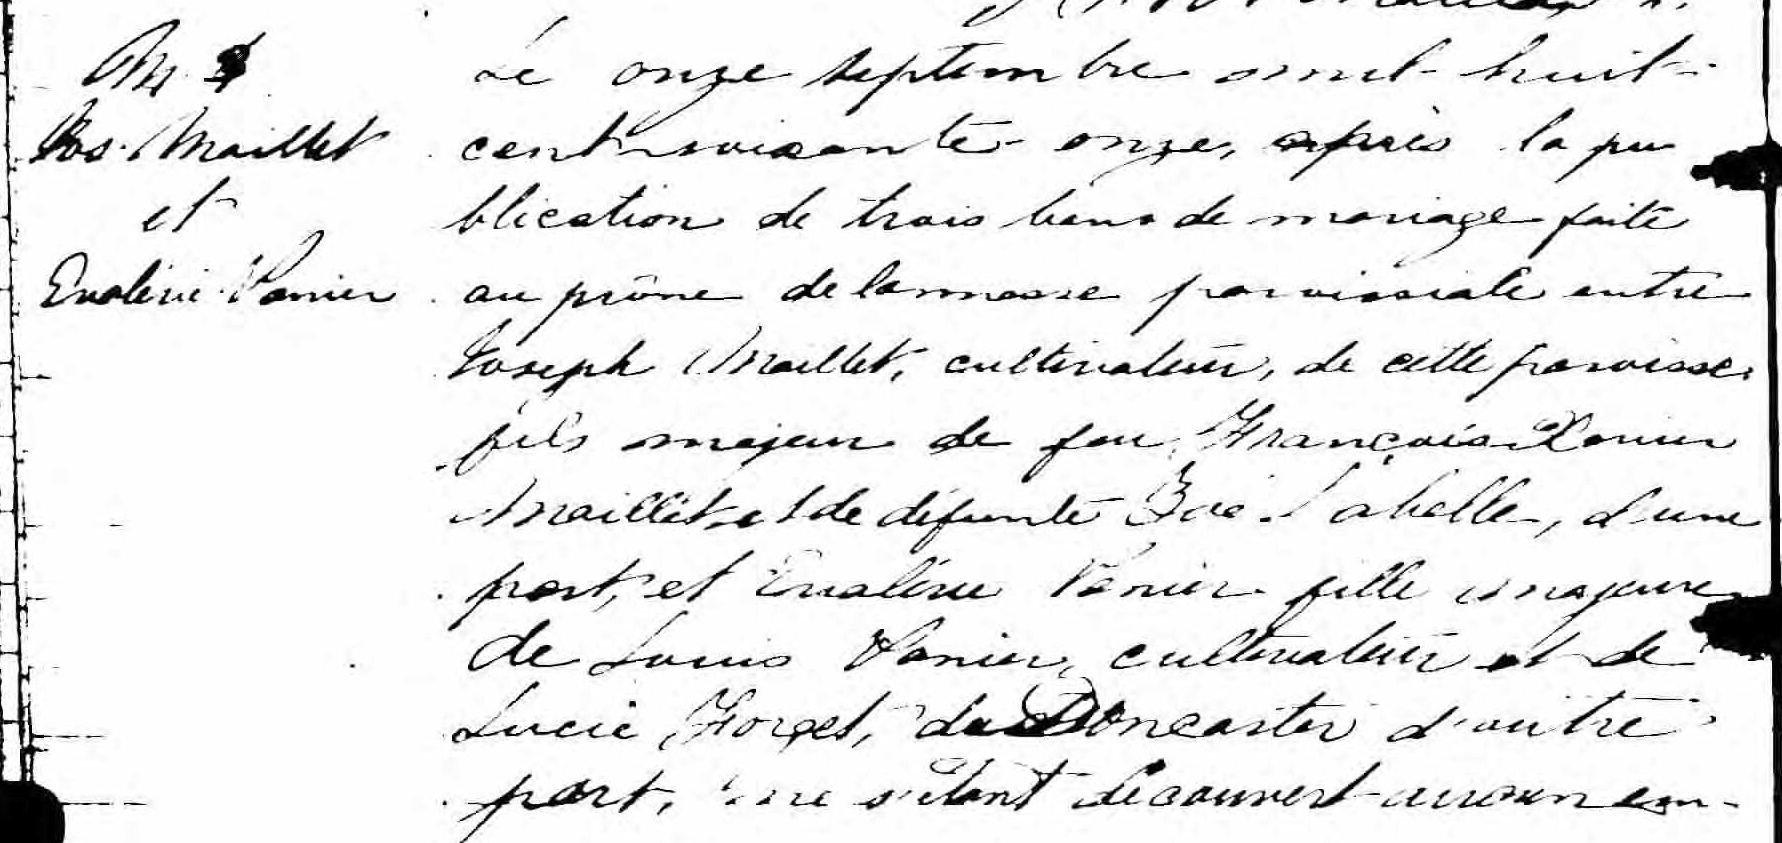 M
Jos. Maillet
et
Evalérie Vanier
Le onze septembre mil huit-
cent soixante-onze, après la pu
blication de trois bans de mariage faite
au prône de la messe paroissiale entre
Joseph Maillet, cultivateur, de cette paroisse,
fils majeur de feu François Xavier
Maillet et de défunte Zoé Labelle, d'une
part, et Evalérie Vanier fille majeure
de Louis Vanier, cultivateur et de
Lucie Forget, de Doncaster d'autre
part, ne s'étant découvert aucun em-